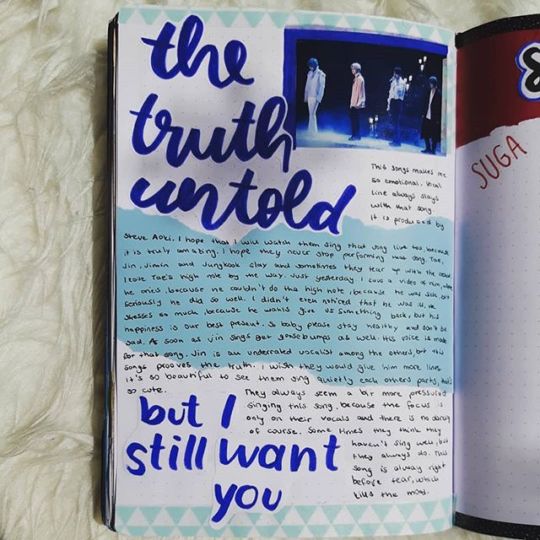 the
truth
untold
This songs makes me
so emotional. Vocal
line always slays
with that song.
It is produced by
Steve Aoki. I hope that I will watch them sing that song live too because
it is truly amazing. I hope they never stop performing this song. Tae,
Jin, Jimin and Jungkook slay and sometimes they tear up with the crowd.
I love Tae's high note by the way. Just yesterday I saw a video of him, where
he cries, because he couldn't do this high note, because he was sick but
seriously he did so well. I didn't even noticed that he was ill. He
stresses so much, because he wants give us something back, but his
happiness is our best present. So baby please stay healthy and don't be
sad. As soon as Jin sings I get goosebumps as well. His voice is made
for that song. Jin is an underrated vocalist among the others, but this
songs prooves the truth. I wish they would give him more lines.
It's so beautiful to see them sing quietly each others parts, that's
so cute.
They always seem a bit more pressured
singing this song, because the focus is
only on their vocals and there is no dancing
of course. Some times they think they
haven't sing well, but
they always do. This
song is always right
before tear, which
kills the mood.
but I
still want
you
SUGA